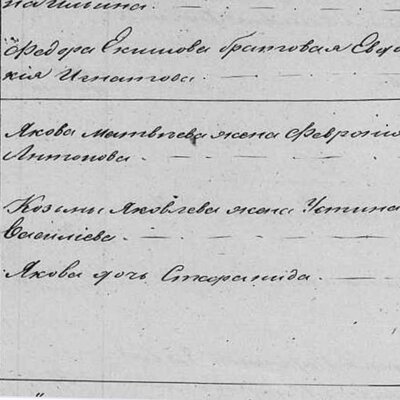 Федора Екимова братовая Евдо
кія Игнатова.
Якова Матвѣева жена Февронія
Антонова.
Козьмы Яковлева жена Устина
Василіева.
Якова дочь Степанида.